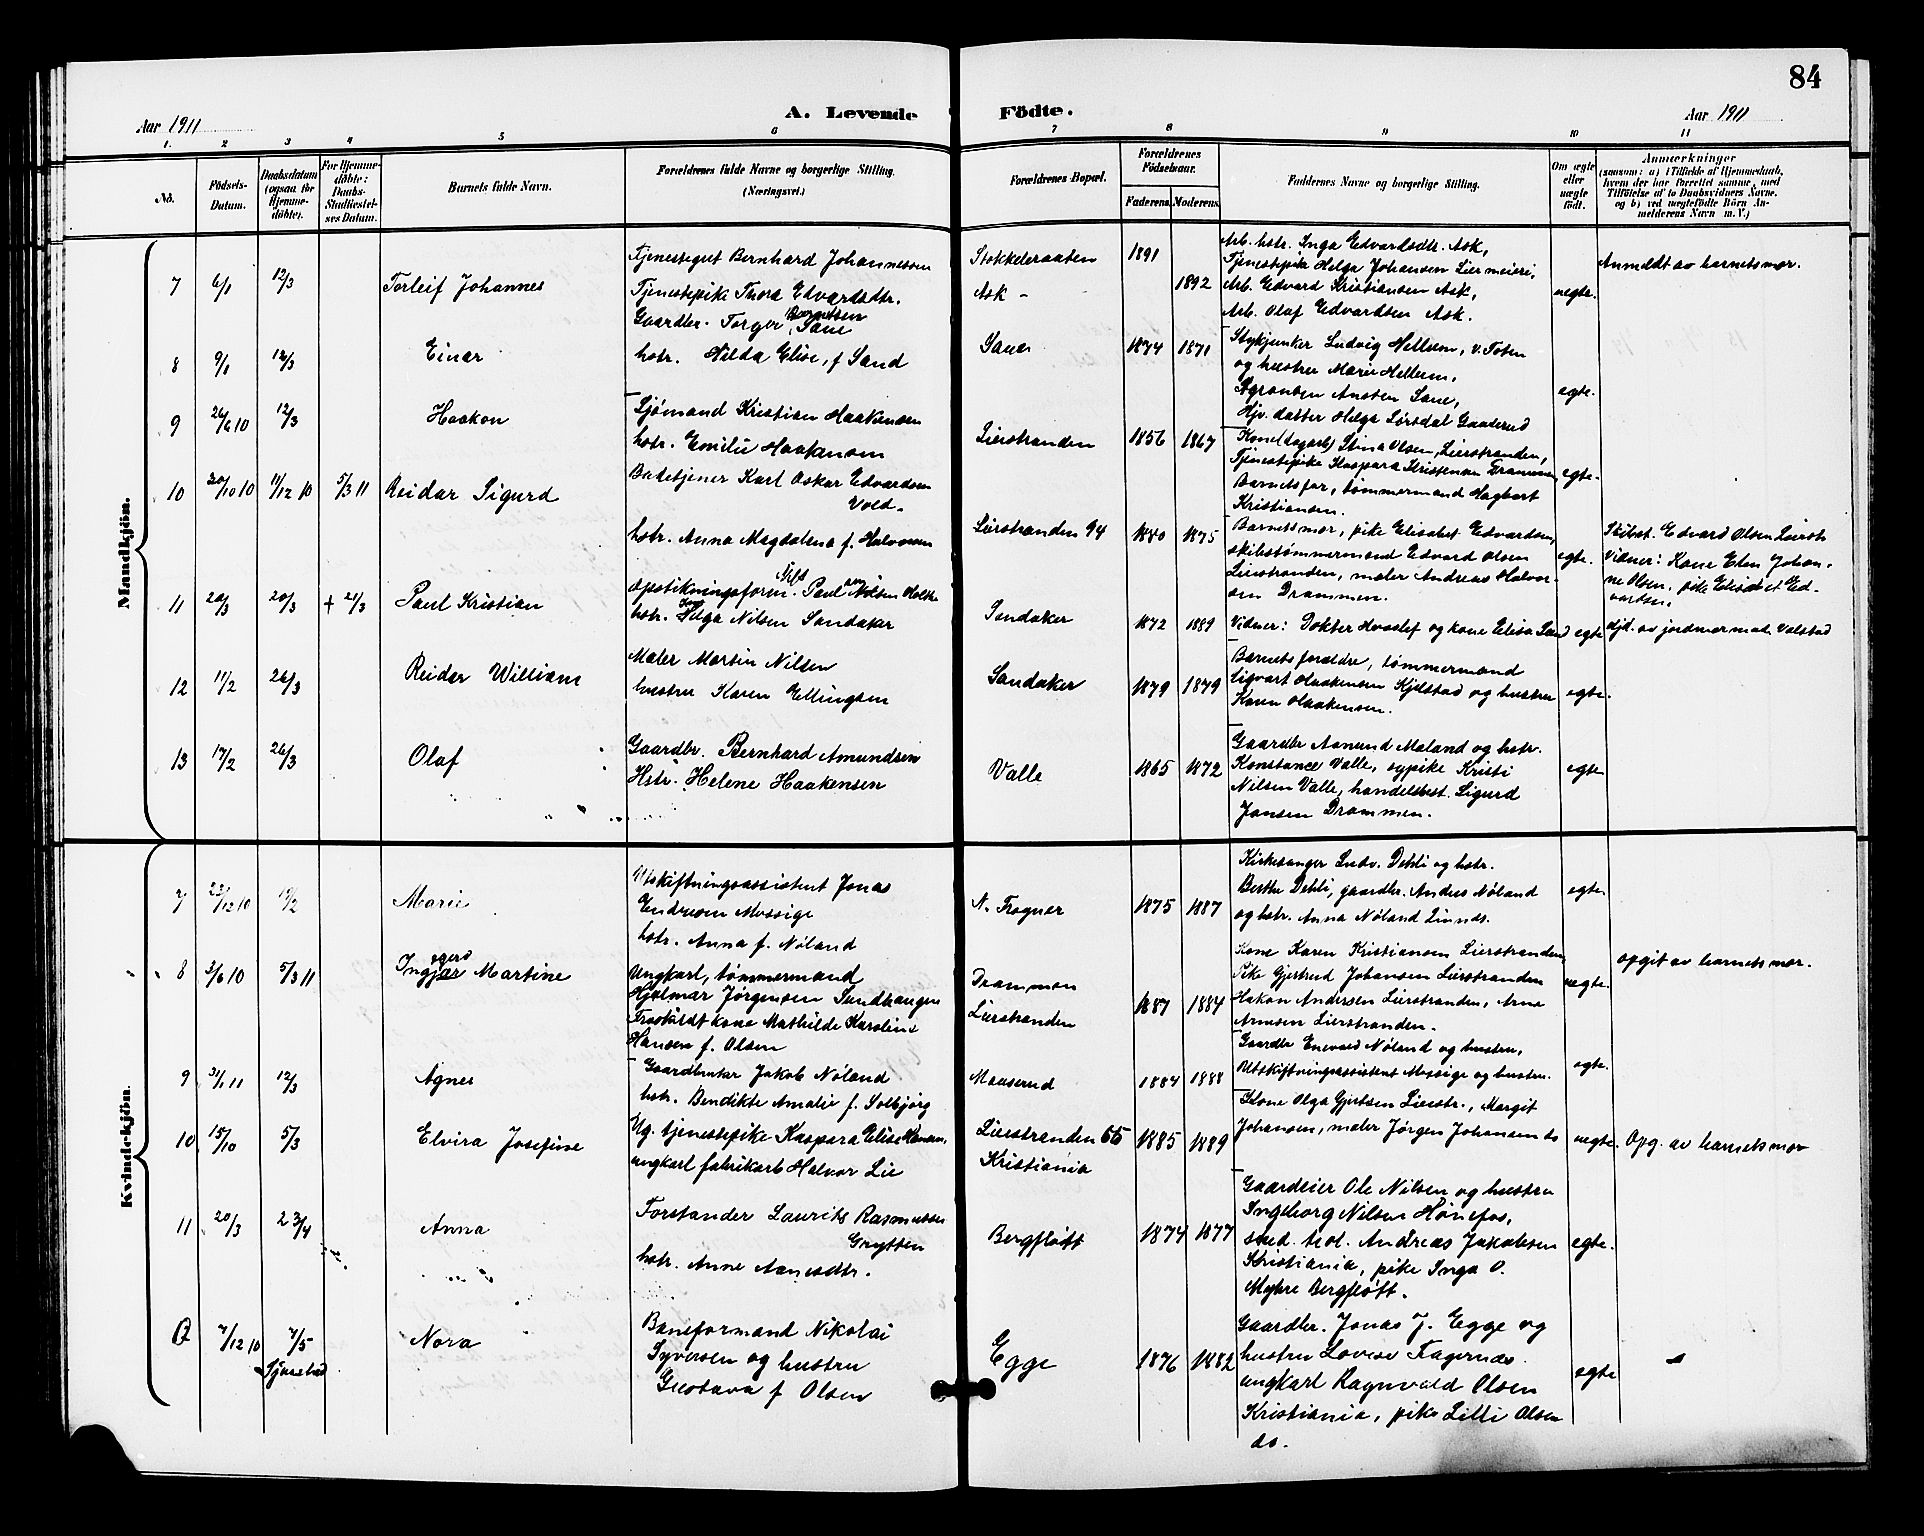 84
Aar 1911
A. Levende Födte.
Aar 1911
1. 2 3 4 5 6 7 8 9 10 11
No.
Födsels-Datum.
Daabsdatum (ogsaa for Hjemmedöbte).
For Hjemmedöbte: Daabs-Stadfæstelses Datum.
Barnets fulde Navn.
Forældrenes fulde Navne og borgerlige Stilling. (Næringsvei.)
Forældrenes Bopæl.
Forældrenes Födselsaar.
Faderens. Moderens.
Faddernes Navne og borgerlige Stilling.
Om ægte eller uægte födt.
Anmærkninger
(saasom: a) i Tilfælde af Hjemmedaab, hvem der har forrettet samme, med Tilföielse af to Daabsvidners Navne, og b) ved uægtefödte Börn Anmelderens Navn m. V.)
Mandkjön.
7 6/1 12/3 Torleif Johannes
Tjenestegut Bernhard Johannessen
Tjenestepike Thora Edvardsdtr.
Stokkeraaten 1891
Ask - 1892
Arb. hstr. Inga Edvardsdtr. Ask,
Tjenestepike Helga Johansen Liermeieri,
Arb. Edvard Kristiansen Ask,
Arb. Olaf Edvardsen Ask.
uegte.
Anmeldt av barnets mor.
8 9/1 12/3 Einar
Gaardbr. Torger Berntsen Saue
hstr. Hilda Elise, f Sand
Saue 1874 1871
Stykjunker Ludvig Hellum, v. Toten
og hustru Marie Hellum,
Agronom Ansten Saue,
Hjv. datter Helga Sørsdal Gaaserud
egte.
9 26/6 10 12/3 Haakon
Sjømand Kristian Haakensen
hstr. Emilie Haakensen
Lierstranden 1856 1867
Kone (dagarb) Stina Olsen, Lierstranden,
Tjenestepike Kaspara Kristensen Drammen,
Barnets far, tømmermand Hagbart
Kristiansen.
egte.
10 20/10 10 11/12 10 5/3 11 Reidar Sigurd
Badetjener Karl Oskar Edvardsen
Vold.
hstr. Anna Magdalena f. Halvorsen
Lierstranden 94 1880 1875
Barnets mor, pike Elisabet Edvardsen,
skibstømmermand Edvard Olsen
Lierstranden, maler Andreas Halvor-
sen Drammen.
egte.
Skibst. Edvard Olsen Lierst.
Vidner: Kone Elen Johan-
ne Olsen, pike Elisabet Ed-
vardsen.
11 20/3 20/3 + 21/3 Paul Kristian
Opstikningsform. Paul Nilsen
hstr. Helga Nilsen Sandaker
Sandaker 1872 1889
Vidner: Dokter Hvoslef og kone Elisa Sand
egte
Hjd. av jordmor mat. Valstad
12 11/2 26/3 Reidar William
Maler Martin Nilsen
hustru Karen Ellingsen
Sandaker 1879 1879
Barnets forældre, tømmermand
Sigvart Haakensen Kjelstad og hustru
Karen Haakensen.
egte.
13 17/2 26/3 Olaf
Gaardbr. Bernhard Amundsen
Hstr. Helene Haakensen
Valle 1865 1872
Gaardbr Amund Maland og hstr.
Konstance Valle, sypike Kristi
Nilsen Valle, handelsbest. Sigurd
Jansen Drammen.
egte
Kvindekjön.
7 23/12 10 19/2 Marie
Utskiftningsassistent Jonas
Endresen Mossige
hstr. Anna f. Nøland
N. Frogner 1875 1887
Kirkesanger Ludv. Dehli og hstr.
Berthe Dehli, gaardbr. Anders Nøland
og hstr. Anna Nøland Linnes.
egte.
8 3/6 10 5/3 11 Ingjær egerd Martine
Ungkarl, tømmermand
Hjalmar Jørgensen Sundhaugen
Fraskildt kone Mathilde Karoline
Hansen f. Olsen
Drammen
Lierstranden 1887 1884
Kone Karen Kristiansen Lierstranden
Pike Gjertrud Johansen Lierstranden
Hakon Andersen Lierstranden, Arne
Arnesen Lierstranden.
uegte.
opgit av barnets mor.
9 31/1 11 12/3 Agnes
Gaardbruker Jakob Nøland
hstr. Bendikte Amalie f. Solbjørg
Mauserud 1884 1888
Gaardbr Enevald Nøland og hustru,
Utskiftningsassistent Mossige og hustru.
egte.
10 15/10 5/3 Elvira Josefine
Ug. tjenestepike Kaspara Elise Hansen,
ungkarl fabrikarb Halvor Lie
Lierstranden 65
Kristiania 1885 1889
Kone Olga Gjertsen Lierstr., Margit
Johansen, maler Jørgen Johansen do
uegte.
Opg. av barnets mor
11 20/3 23/4 Anna
Forstander Laurits Rasmussen
Grytten
hstr. Anne Aanesdtr.
Bergfløtt 1874 1877
Gaardeier Ole Nilsen og hustru
Ingeborg Nilsen Hønefos,
stud. teol. Andreas Jakobsen
Kristiania, pike Inga O.
Myhre Bergfløtt.
egte.
7/12 10 7/5 Nora
Baneformand Nikolai
Syversen og hustru
Gustava f Olsen
Egge 1876 1882
Gaardbr. Jonas J. Egge og
hustru Lovise Fagernæs
ungkarl Ragnvald Olsen
Kristiania, pike Lilli Olsen
do.
egte